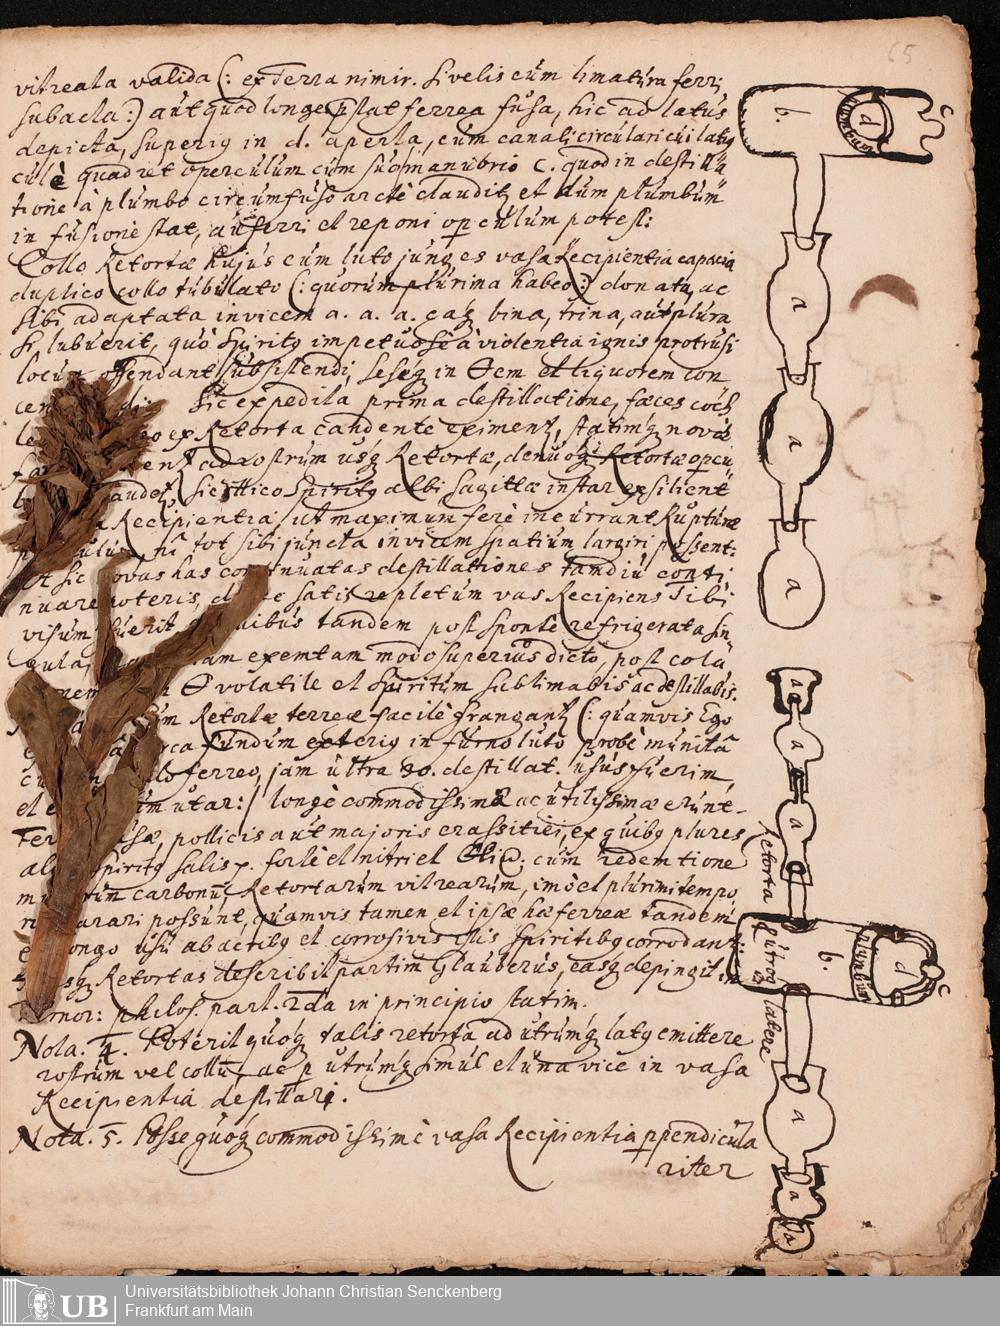 65
vitreata valida (: ex Terra nimir. si velis cum limatura ferri
subacta :) aut quod longe pstat ferrea fusa, hic ad latus
depicta, superig in d. aperta, cum canali circulari cui latig
culè quadret operculum cum suo manubrio c. quod in destilla
tione à plumbo circumfuso arctè claudit et dum plumbum
in fusione stat, auferri et reponi operculum potest:
Collo Retortæ hujus cum luto junges vasa Recipientia capacia
duplici collo tubulato (: quorum plurima habeo :) donata, ac
sibi adaptata invicem a. a. a. eaq bina, trina, aut plura
si lubuerit, quò Spiritg impetuosè à violentia ignis protrusi
locum offendant subsistendi, seseq in et liquorem con
Sic expedita prima destillatione, fæces
ex Retorta candente eximent, statimq novis
ad rostrum usq Retortæ, denuoq Retortæ opcu
sic illico Spiritg albi sagittæ instar exsilient
Recipientia, ut maximum ferè incurrant Rupturæ
tot sibi juncta invicem spatium largiri possent:
sic novas has continuatas destillationes tandiu conti
nuare poteris, satis repletum vas Recipiens Tibi
visum fuerit tandem post spontè refrigerata sin
gula, exemtam modo superius dicto, post cola
volatile et Spiritum sublimabis ac destillabis.
Retortæ terreæ facilè frangant (: quamvis Ego
fundum exterig in furno luto probè munita
ferreo, jam ultra 30. destillat. usus fuerim,
et utar :/ longè commodissimæ ac utilissimæ erunt
pollicis aut majoris crassitiei, ex quibg plures
Spiritg salis p. forte et nitri et cum redemtione
carbonum, Retortarum vitrearum, imò et plurimi tempo,
parari possunt, quamvis tamen et ipsæ hæ ferreæ tandem
longo usu ab acribg et corrosivis istis Spiritibg corrodant:
Retortas describit partim Glauberus, easq depingit in
philos. part. 2da in principio statim.
Nota. 4. Poterit quoq talis retorta ad utrumq latg emittere
rostrum vel collu, ac p utrumq simul et una vice in vasa
Recipientia destillari.
Nota. 5. Posse quoq commodissimè vasa Recipientia ppendicula
riter
b.
d
c
plumbum
a
a
a
a
a
a
Retorta utroq latere
b.
plumbum
d
c
a
a
a
Universitätsbibliothek Johann Christian Senckenberg
Frankfurt am Main
UB